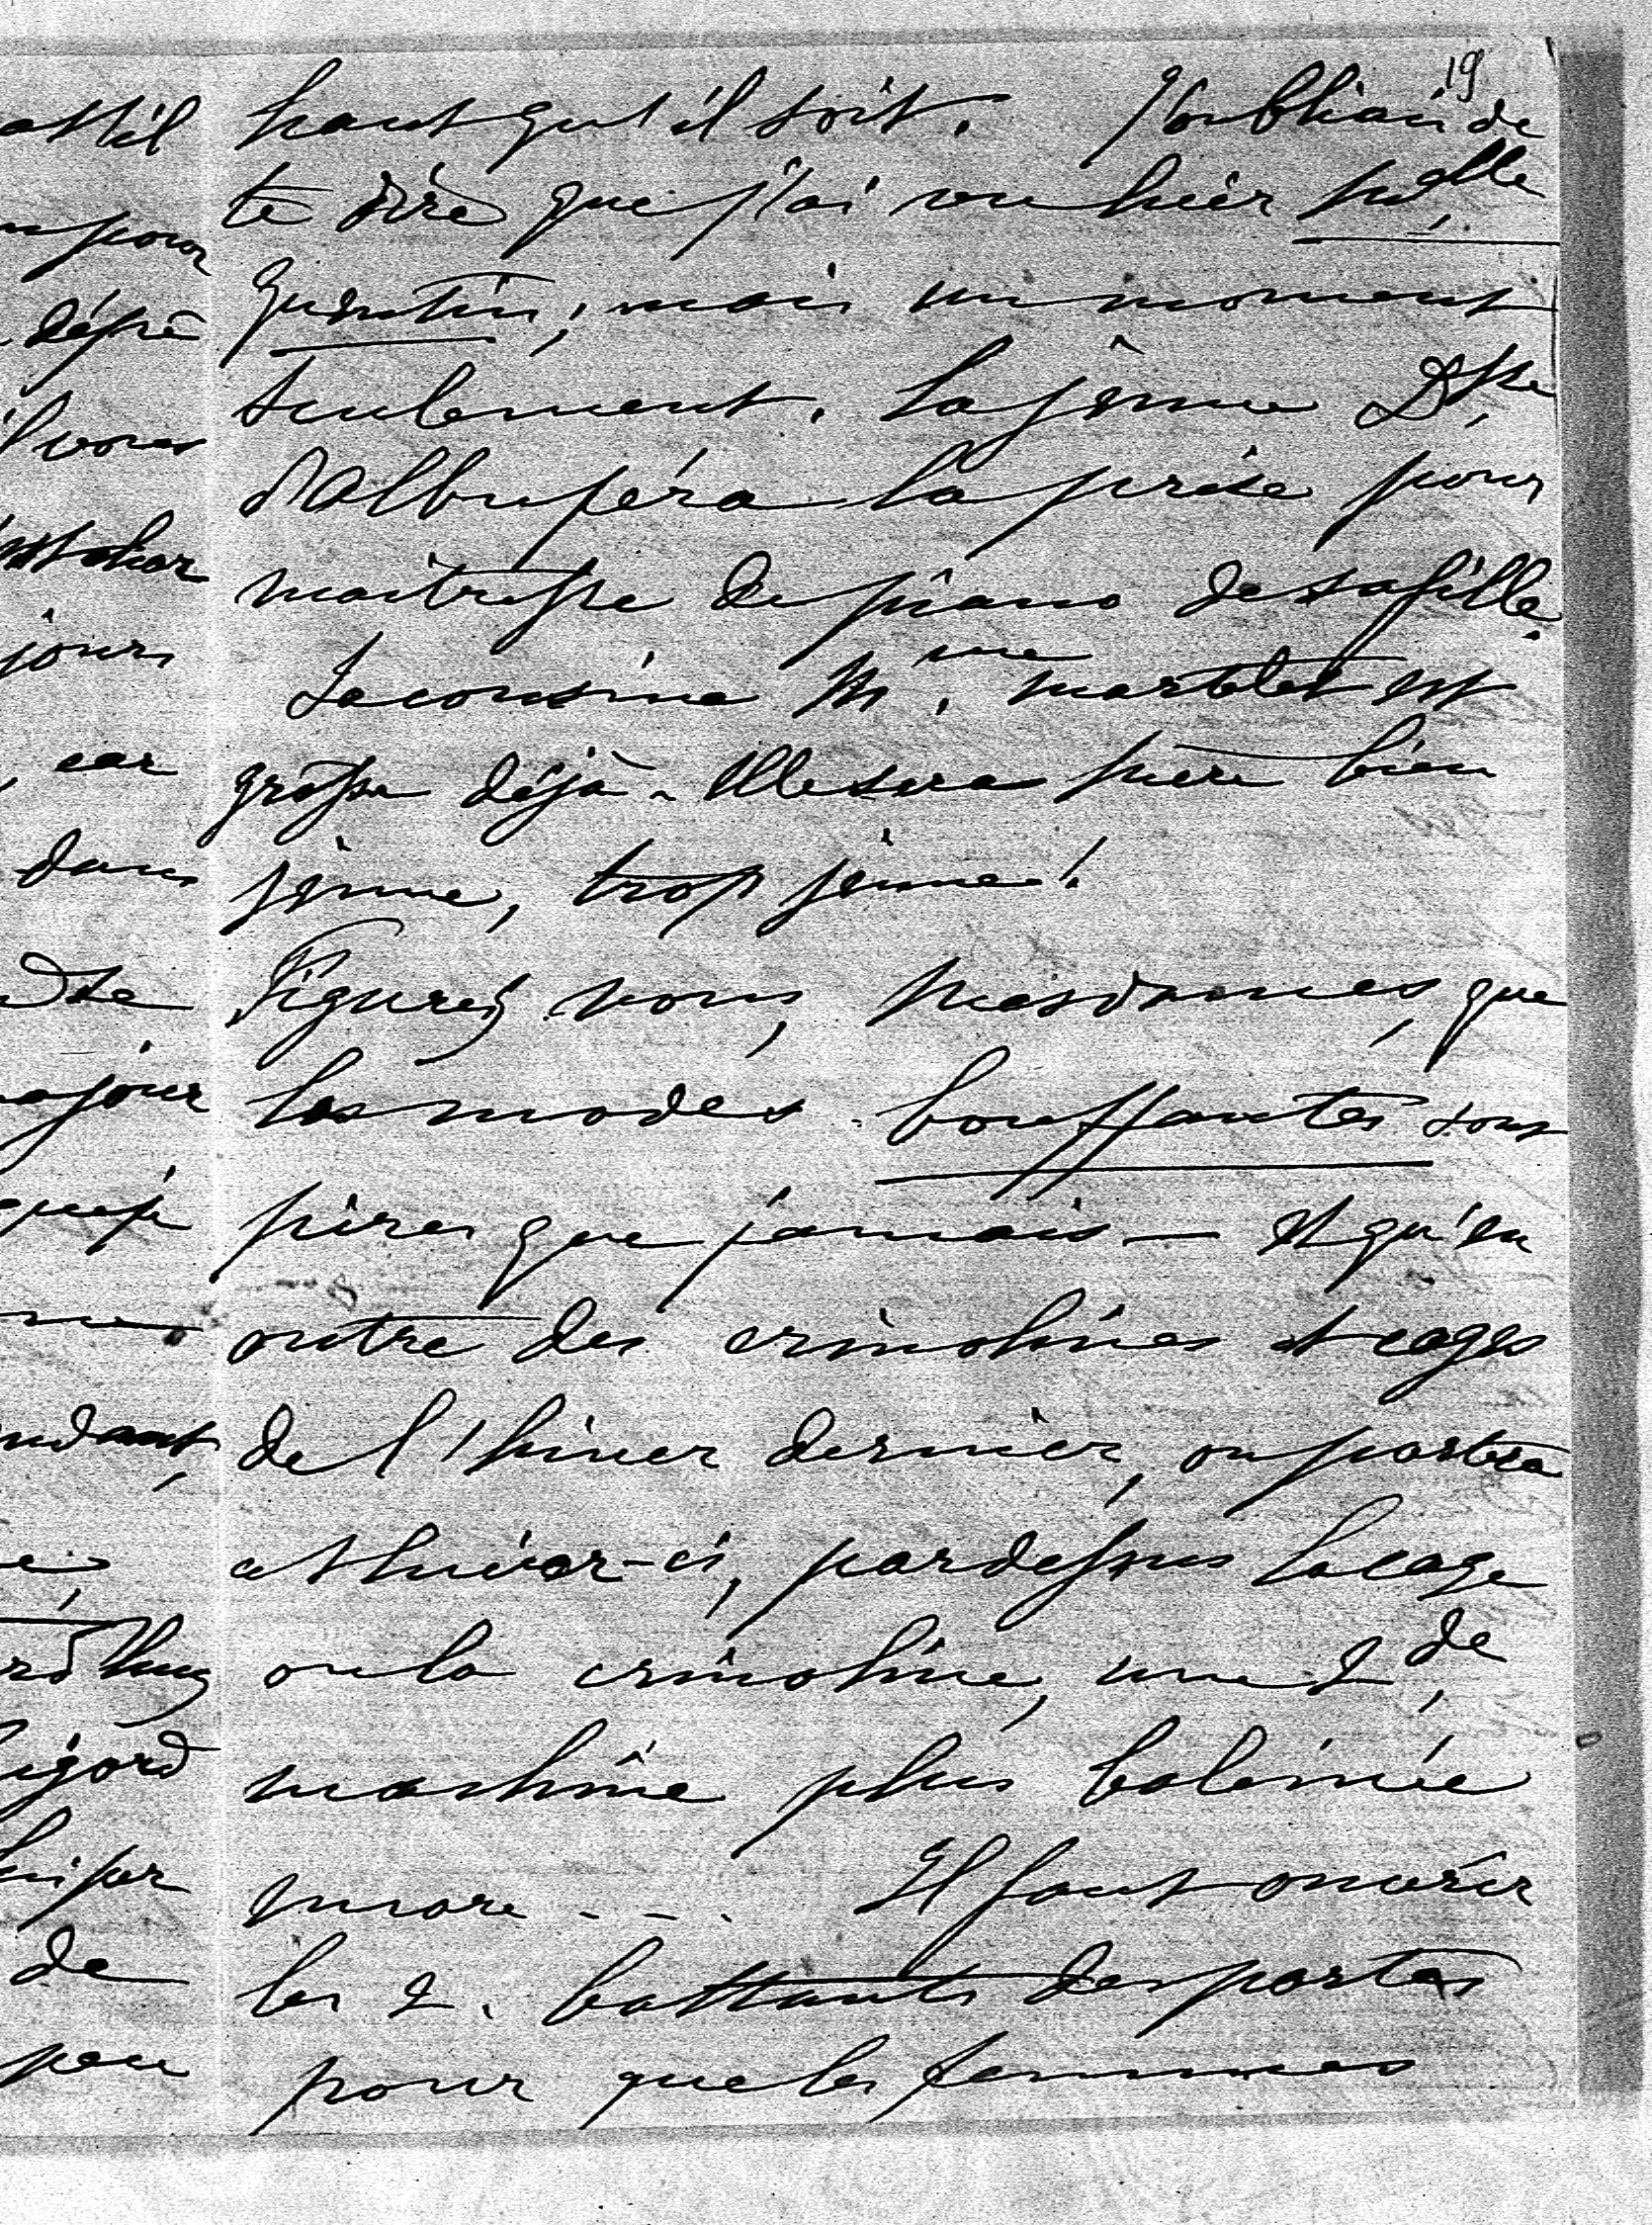 19
haut qu'il soit. J'oubliais de
te dire que j'ai vu hier M.elle
Quentin, mais un moment
seulement. La jeune D.sse
d'Albuféra l'a prise pour
maitresse de piano de sa fille.
La cousine M.me Martelet est
grosse déjà. Elle sera mère bien
jeune, trop jeune!
Figurez vous, Mesdames, que
les modes bouffantes sont
pires que jamais — Et qu'en
outre des crinolines et cages
de l'hiver dernier, on portera
cet hiver-ci, pardessus la cage
ou la crinoline, une 2.de
machine plus baleinée
encore - - - . Il faut ouvrir
les 2. battants des portes
pour que les femmes